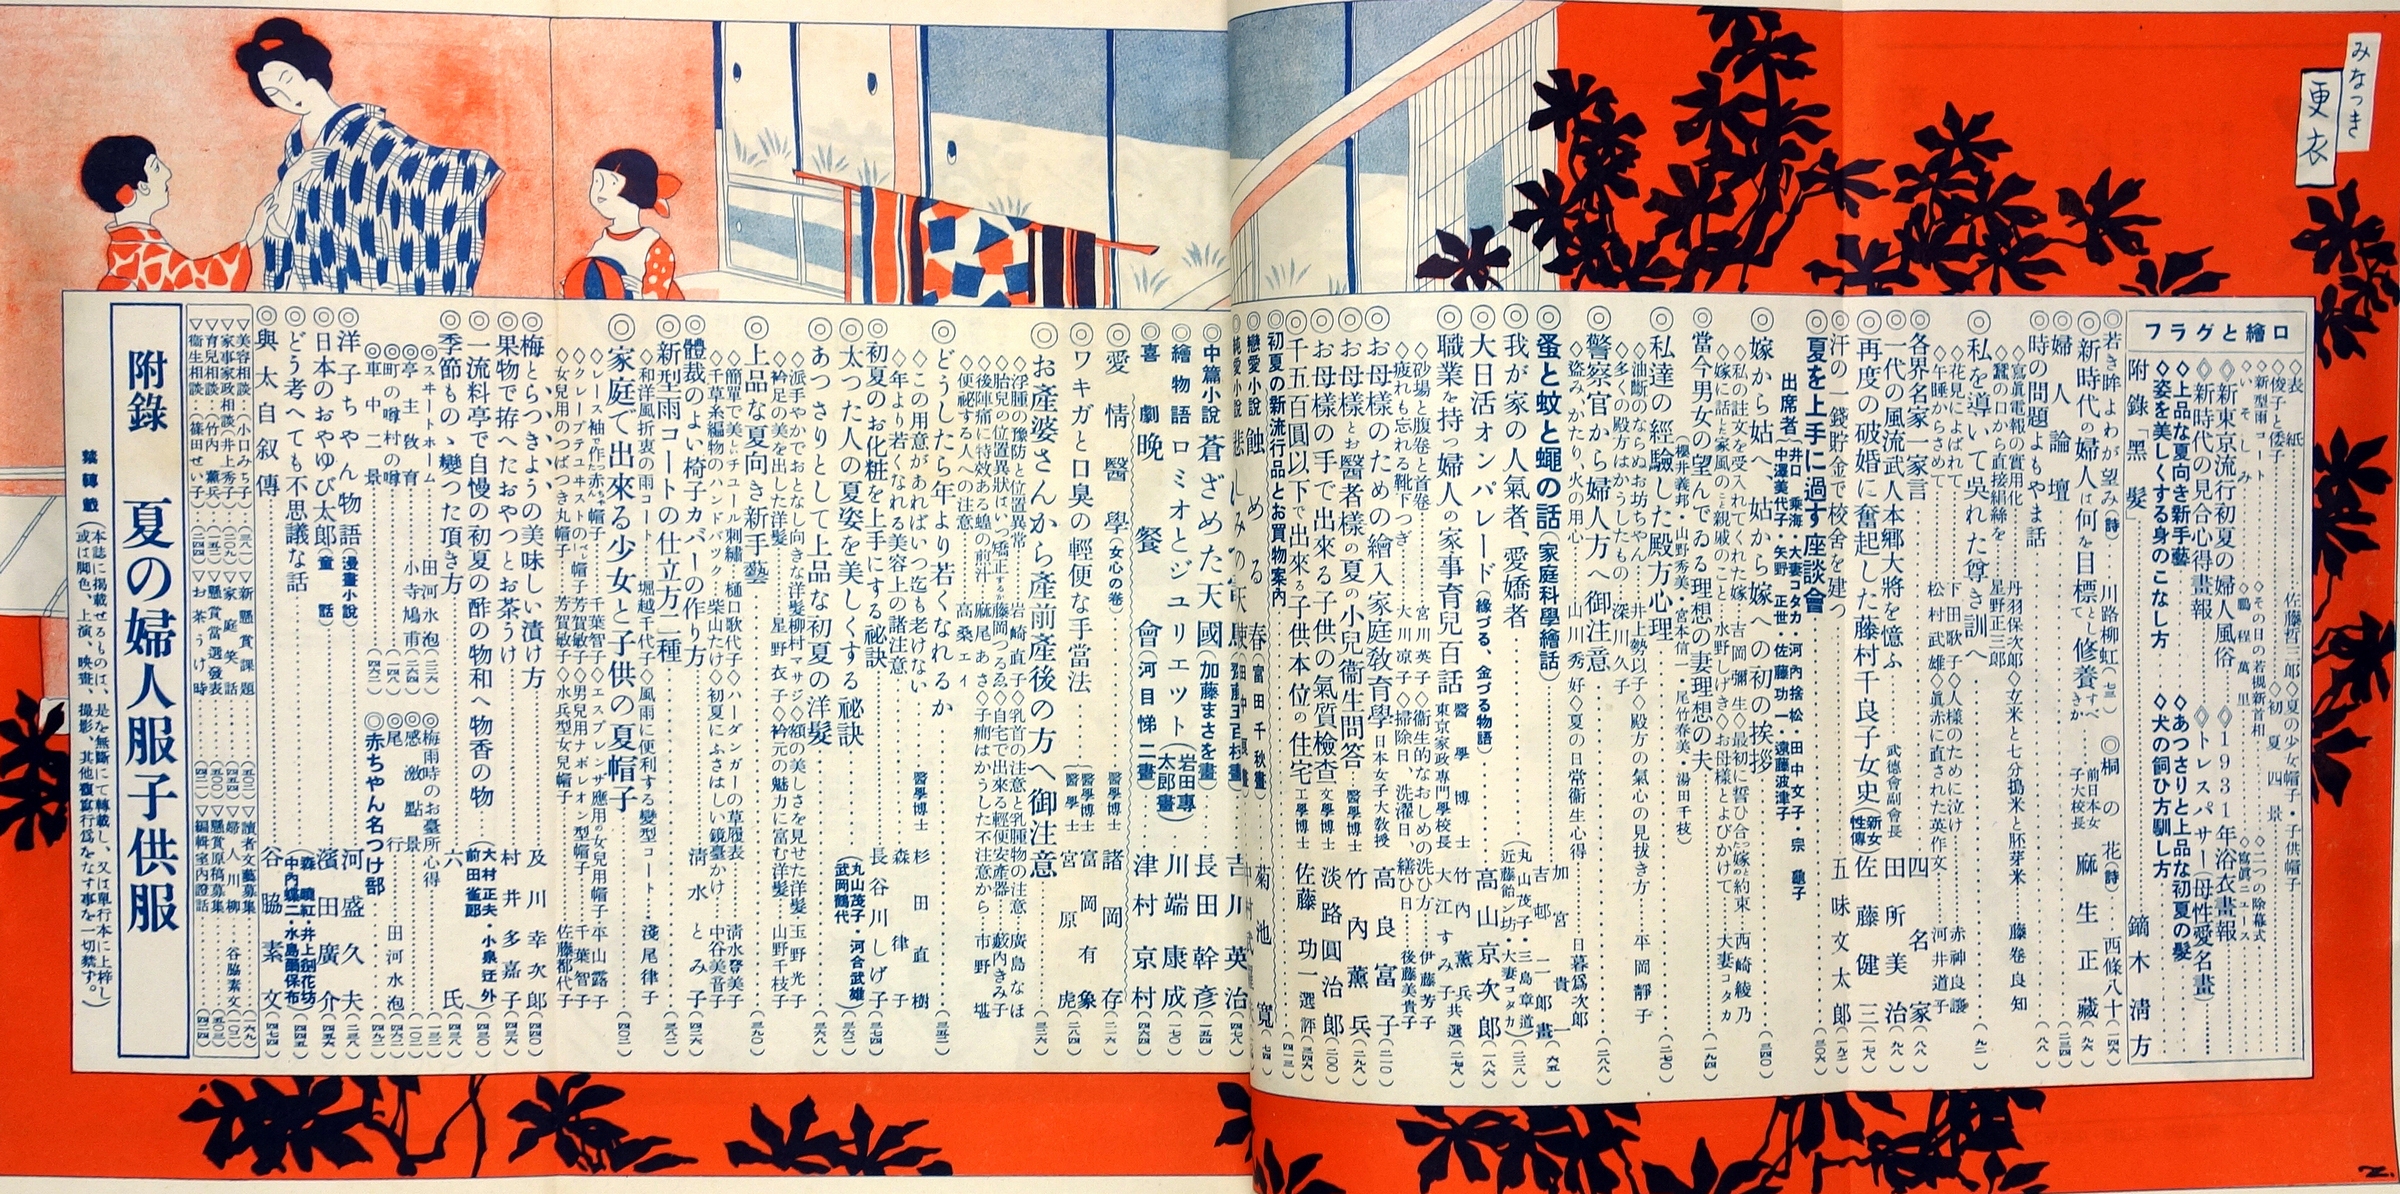 みなつき
更衣
口繪とグラフ
◇表紙 佐藤哲三郎
◇夏の少女帽子・子供帽子
◇俊子と倭子
◇初夏四景
◇新型雨コート
◇その日の若槻新首相
◇二つの除幕式
◇いそしみ
◇鵬程萬里
◇寫眞ニュース
◇新東京流行初夏の婦人風俗
◇1931年浴衣畫報
◇新時代の見合心得畫報
◇トレスパサー(母性愛名畫)
◇上品な夏向き新手藝
◇あつさりと上品な初夏の髮
◇姿を美しくする身のこなし方
◇犬の飼ひ方馴し方
附錄「黑髮」 鏑木淸方
◎若き眸よわが望み(詩) 川路柳虹
◎桐の花(詩) 西條八十
◎新時代の婦人は何を目標として修養すべきか 前日本女子大校長 麻生正藏
◎婦人論壇
◎時の問題よもやま話
◇寫眞電報の實用化 丹羽保次郎
◇玄米と七分搗米と胚芽米 藤卷良知
◇蠶の口から直接絹絲を 星野正三郎
◎私を導いて吳れた尊き訓へ
◇花見によばれて 下田歌子
◇人樣のために泣け 赤神良讓
◇午睡からさめて 松村武雄
◇眞赤に直された英作文 河井道子
◎各界名家一家言 四名家
◎一代の風流武人本鄕大將を憶ふ 武德會副會長 田所美治
◎再度の破婚に奮起した藤村千良子女史(新女性傳) 佐藤健三
◎汗の一錢貯金で校舍を建つ 五味文太郎
◎夏を上手に過す座談會
出席者
井口乘海・大妻コタカ・河內捨松・田中文子・宗龜子
中澤美代子・矢野正世・佐藤功一・遠藤波津子
◎嫁から姑へ、姑から嫁への初の挨拶
◇私の註文を受入れてくれた嫁 吉岡彌生
◇最初に誓ひ合つた嫁との約束 西崎綾乃
◇嫁に話した家風のこと親戚のこと 水野しげき
◇お母樣とよびかけて 大妻コタカ
◎當今男女の望んでゐる理想の妻理想の夫
(櫻井義邦・山野秀美・宮本信一・尾竹春美・湯田千枝)
◎私達の經驗した殿方心理
◇油斷のならぬお坊ちやん 井上勢以子
◇殿方の氣心の見拔き方 平岡靜子
◇多くの殿方はかうしたもの 深川久子
◎警察官から婦人方へ御注意
◇盜み、かたり、火の用心 山川秀好
◇夏の日常衞生心得 日暮爲次郎
◎蚤と蚊と蠅の話(家庭科學繪話) 加宮貴一 吉邨二郎畫
◎我が家の人氣者、愛嬌者
◎大日活オンパレード(緣づる、金づる物語) 高山京次郎
◎職業を持つ婦人の家事育兒百話 醫學博士 竹內薰兵 東京家政專門學校長 大江すみ子 共選
◇砂場と腹卷と首卷 宮川英子
◇衞生的なおしめの洗ひ方 伊藤芳子
◇疲れも忘れる靴下つぎ 大川涼子
◇掃除日、洗濯日、繕ひ日 後藤美貴子
◎お母樣のための繪入家庭敎育學 日本女子大敎授 高良富子
◎お母樣とお醫者樣の夏の小兒衞生問答 醫學博士 竹內薰兵
◎お母樣の手で出來る子供の氣質檢査 文學博士 淡路圓治郎
◎千五百圓以下で出來る子供本位の住宅 工學博士 佐藤功一選評
初夏の新流行品とお買物案內
◎戀愛小說 蝕める春(富田千秋畫) 菊池寬
◎中篇小說 蒼ざめた天國(加藤まさを畫) 長田幹彥
◎繪物語 ロミオとジユリエツト(岩田專太郎畫) 川端康成
◎喜劇 晚餐會(河目悌二畫) 津村京村
◎愛情醫學(女心の卷) 醫學博士 諸岡存
◎ワキガと口臭の輕便な手當法 醫學博士 富岡有象 醫學士 宮原虎
◎お產婆さんから產前產後の方へ御注意
◇浮腫の豫防と位置異常 岩崎直子
◇乳首の注意と乳腫物の注意 廣島なほ
◇胎兒の位置異狀はいつ矯正するか 藤岡つるゑ
◇自宅で出來る輕便安產器 藪內きみ子
◇後陣痛に特效ある蝗の煎汁 麻尾あさ
◇子癇はかうした不注意から 市野堪
◇便祕する人への注意 高桑エイ
◎どうしたら年より若くなれるか
◇この用意があればいつ迄も老けない 杉田直樹
◇年より若くなれる美容上の諸注意 森律子
◎初夏のお化粧を上手にする祕訣 長谷川しげ子
◎太つた人の夏姿を美しくする祕訣 (丸山茂子・河合武雄 武岡鶴代)
◎あつさりとして上品な初夏の洋髮
◇派手やかでおとなし向きな洋髮 柳村マサジ
◇額の美しさを見せた洋髮 玉野光子
◇衿足の美を出した洋髮 星野衣子
◇衿元の魅力に富む洋髮 山野千枝子
◎上品な夏向き新手藝
◇簡單で美しいチユール刺繡 樋口歌代子
◇ハーダンガーの草履表 淸水登美子
◇千草糸編物のハンドバツグ 柴山たけ
◇初夏にふさはしい鏡臺かけ 中谷美音子
◎體裁のよい椅子カバーの作り方 淸水とみ子
◎新型雨コートの仕立方二種
◇和洋風折衷の雨コート 堀越千代子
◇風雨に便利する變型コート 淺尾律子
◎家庭で出來る少女と子供の夏帽子
◇レース袖で作つた赤ちやん帽子 千葉智子
◇エスプレンザ應用の女兒用帽子 平山露子
◇ストローのベレー帽子 芳賀敏子
◇男兒用ナポレオン型帽子 千葉智子
◇女兒用のつばつき丸帽子 芳賀敏子
◇水兵型女兒帽子 佐藤都代子
◎梅とらつきようの美味しい漬け方 及川幸次郎
◎果物で拵へたおやつとお茶うけ 村井多嘉子
◎一流料亭で自慢の初夏の酢の物和へ物香の物 (大村正夫・小泉迂外 前田雀郎)
◎季節ものゝ變つた頂き方 六氏
◎スヰートホーム 田河水泡
◎梅雨時のお臺所心得
◎亭主敎育 小寺鳩甫
◎感激點景
◎町の噂村の噂
◎尾行 田河水泡
◎車中二景
◎赤ちやん名つけ部
◎洋子ちやん物語(漫畫小說) 河盛久夫
◎日本のおやゆび太郎(童話) 濱田廣介
◎どう考へても不思議な話 (森曉紅・井上劍花坊 中內蝶二・水島爾保布)
◎與太自叙傳 谷脇素文
▽美容相談(小口みち子)
▽新懸賞課題
▽讀者文藝募集
▽家事家政相談(井上秀子)
▽家庭笑話
▽婦人川柳 谷脇素文
▽育兒相談(竹內薰兵)
▽懸賞當選發表
▽懸賞原稿募集
▽衞生相談(篠田せい子)
▽お茶うけ時
▽編輯室內證話
附錄 夏の婦人服子供服
禁轉載
(本誌に揭載せるものは、是を無斷にて轉載し、又は單行本に上梓し
或は脚色、上演、映畫、撮影、其他複寫行爲をなす事を一切禁ず。)